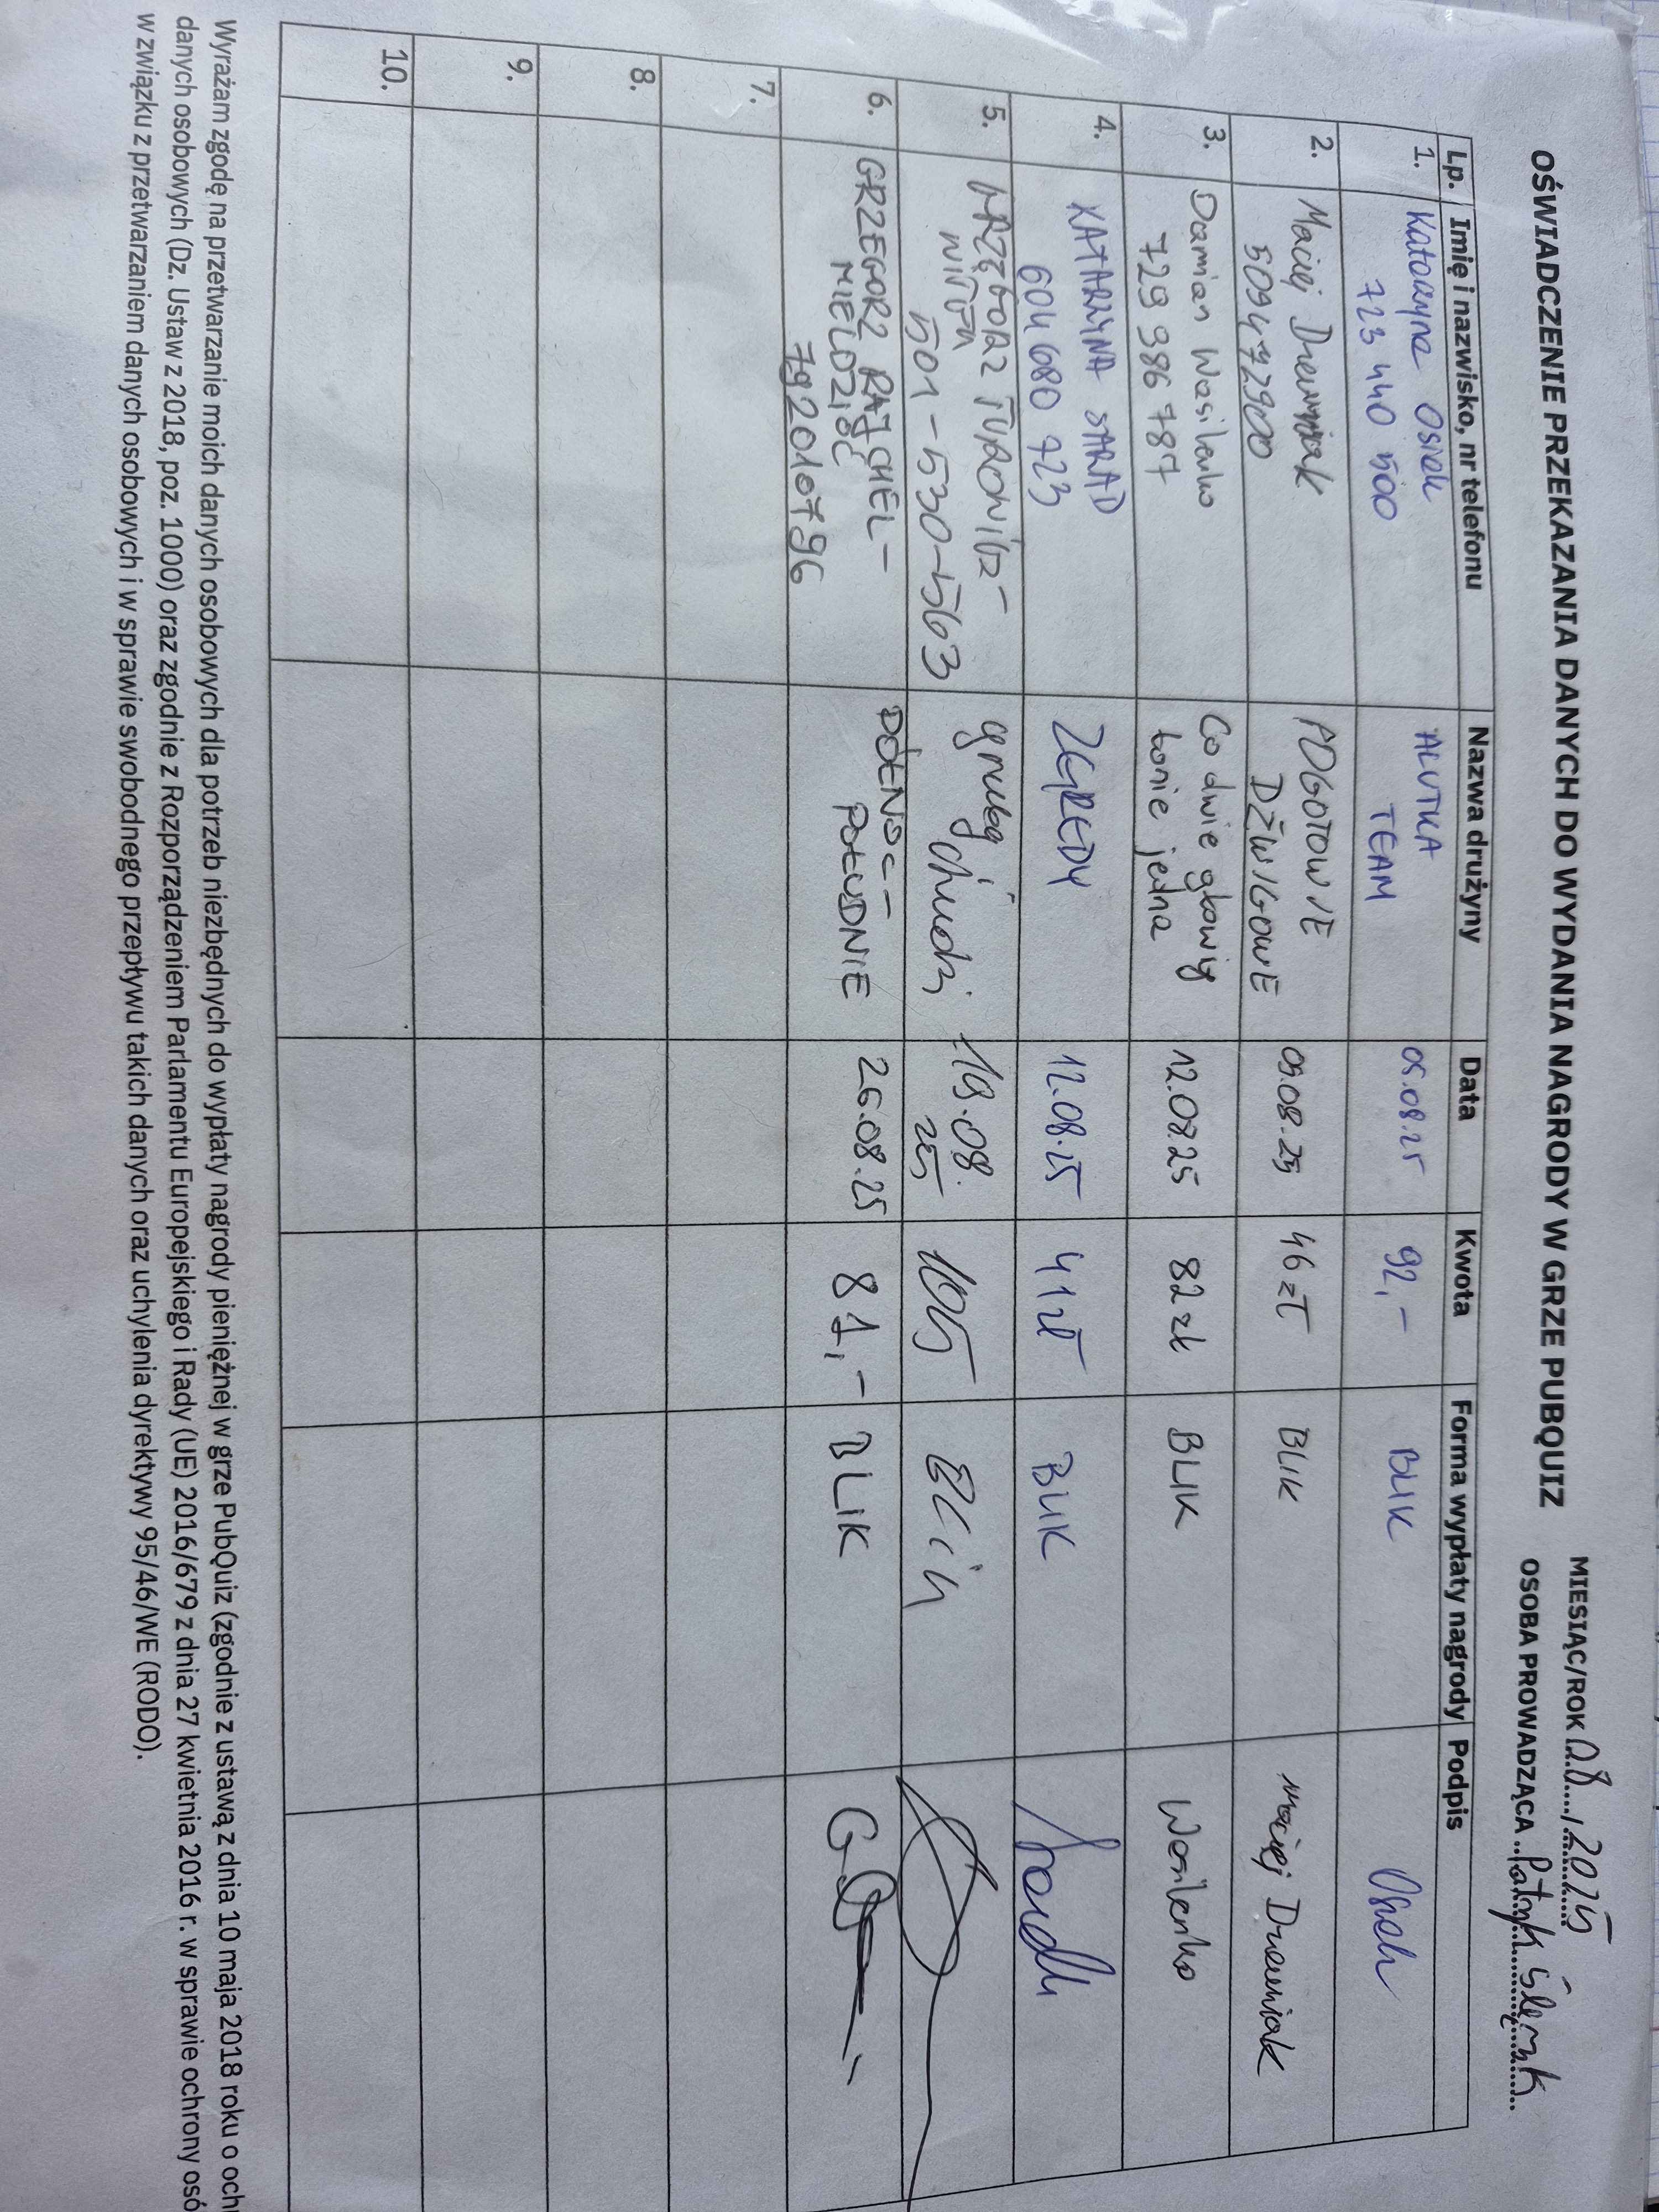 OŚWIADCZENIE PRZEKAZANIA DANYCH DO WYDANIA NAGRODY W GRZE PUBQUIZ
MIESIĄC/ROK 08 / 2025
OSOBA PROWADZĄCA Patryk Ślęzak
Lp. Imię i nazwisko, nr telefonu Nazwa drużyny Data Kwota Forma wypłaty nagrody Podpis
1. Katarzyna Osiek ALUTKA 05.08.25 92,- BLIK Osiek
723 440 500 TEAM
2. Maciej Drewniak POGOTOWIE 05.08.25 46 zł BLIK Maciej Drewniak
509472900 DŹWIGOWE
3. Damian Wasilenko Co dwie głowy 12.08.25 82 zł BLIK Wasilenko
729 986 787 to nie jedna
4. KATARZYNA SARAD ZGREDY 12.08.25 41 zł BLIK
604 680 723
5. gruby i chudzi 19.08. 105 Blik
501-530-563 25
6. GRZEGORZ RAJCHEL- PÓŁNOC- 26.08.25 81,- BLIK
MIELDZIOĆ POŁUDNIE
792010796
7.
8.
9.
10.
Wyrażam zgodę na przetwarzanie moich danych osobowych dla potrzeb niezbędnych do wypłaty nagrody pieniężnej w grze PubQuiz (zgodnie z ustawą z dnia 10 maja 2018 roku o och
danych osobowych (Dz. Ustaw z 2018, poz. 1000) oraz zgodnie z Rozporządzeniem Parlamentu Europejskiego i Rady (UE) 2016/679 z dnia 27 kwietnia 2016 r. w sprawie ochrony osó
w związku z przetwarzaniem danych osobowych i w sprawie swobodnego przepływu takich danych oraz uchylenia dyrektywy 95/46/WE (RODO).